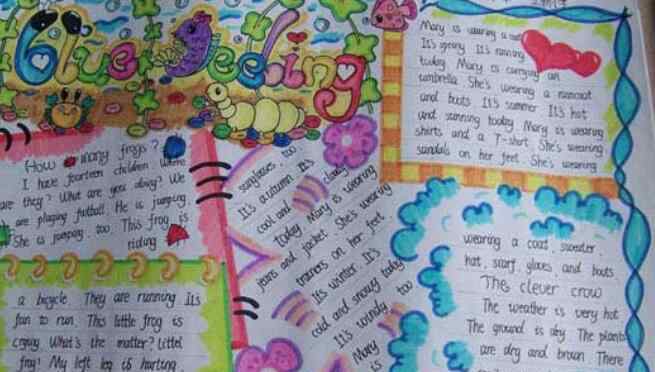 Blue Feeling
How many frogs?
I have fourteen children Where
are they? What are you doing? We
are playing futball. He is jumping.
She is jumping too. This frog is
riding
a bicycle They are running It's
fun to run. This little frog is
crying What's the matter? Littel
frog! My left leg is hurting.
sunglasses too.
It's autumn It's
cool and cloudy
today Mary is wearing
jeans and jacket She's wearing
trainers on her feet
It's winter. It's
cold and snowy today
It's windy too
Mary
is
Mary is wearing a
It's spring It's raining
today Mary is carrying an
umbrella She's wearing a raincoat
and boots It's summer It's hot
and sunning today Mary is wearing
shirts and a T-shirt She's wearing
sandals on her feet. She's wearing
wearing a coat, sweater
hat, scarf, gloves, and boots
The clever crow
The weather is very hot
The ground is dry The plants
are dry and brown There